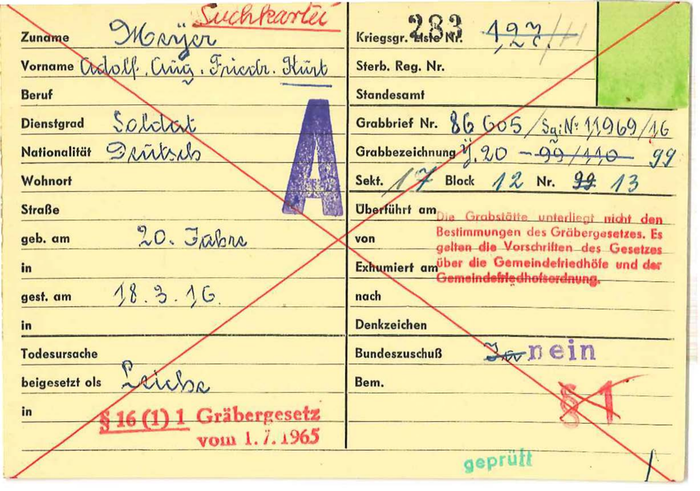 Suchkartei
Zuname Meyer
Vorname Adolf. Aug. Friedr. Kurt
Beruf
Dienstgrad Soldat
Nationalität Deutsch
Wohnort
Straße
geb. am 20. Jahre
in
gest. am 18.3.16.
in
Todesursache
beigesetzt als Leiche
in
§ 16 (1) 1 Gräbergesetz
vom 1.7.1965
A
233
Kriegsgr. Liste Nr. 127/11
Sterb. Reg. Nr.
Standesamt
Grabbrief Nr. 86 605 / Sg: No 11969/16
Grabbezeichnung Y. 20 - 99/110 99
Sekt. 17 Block 12 Nr. 99 13
Überführt am
von
Exhumiert am
nach
Die Grabstätte unterliegt nicht den
Bestimmungen des Gräbergesetzes. Es
gelten die Vorschriften des Gesetzes
über die Gemeindefriedhöfe und der
Gemeindefriedhofsordnung.
Denkzeichen
Bundeszuschuß Ja nein
Bem.
§ 1
geprüft